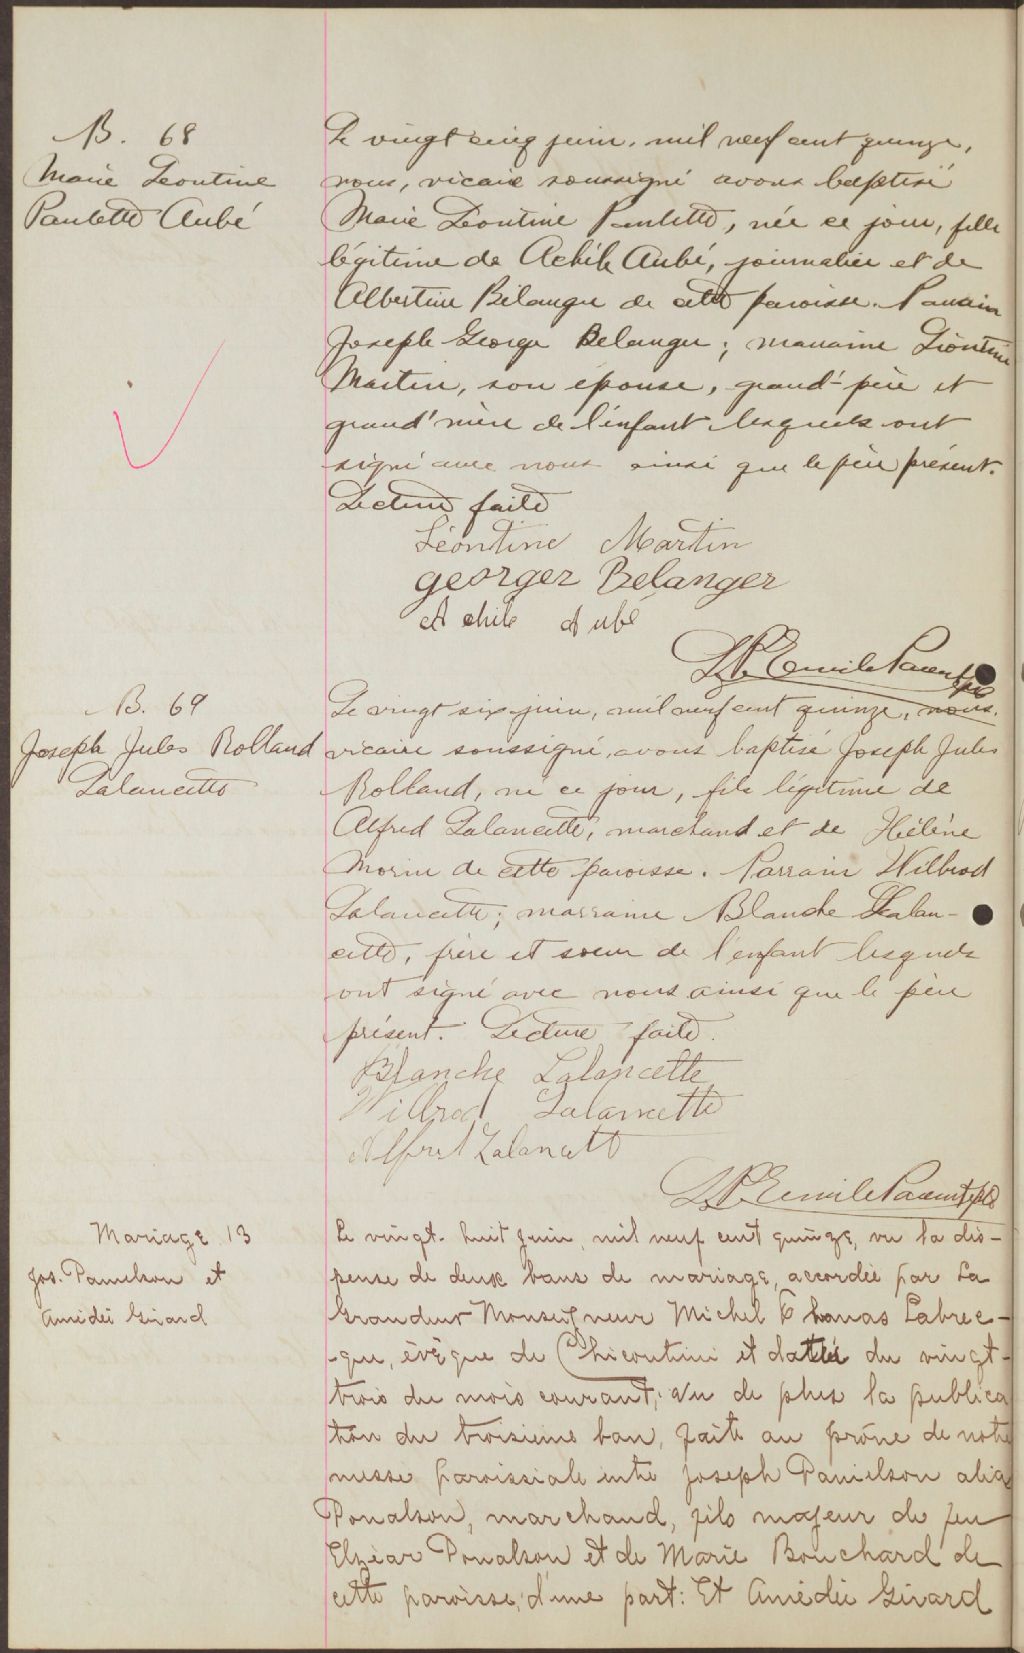 B. 68
Marie Léontine
Paulette Aubé
Le vingt cinq juin, mil neuf cent quinze,
nous, vicaire soussigné avons baptisé
Marie Léontine Paulette, née ce jour, fille
légitime de Achile Aubé, journalier et de
Albertine Bélanger de cette paroisse. Parrain
Joseph George Belanger; marraine Léontine
Martin, son épouse, grand'-père et
grand'mère de l'enfant lesquels ont
signé avec nous ainsi que le père présent.
Lecture faite
Léontine Martin
Georges Belanger
Achile Aubé
L.P. Emile Parent ptre
B. 69
Joseph Jules Rolland
Lalancette
Le vingt six juin, mil neuf cent quinze, nous,
vicaire soussigné, avons baptisé Joseph Jules
Rolland, né ce jour, fils légitime de
Alfred Lalancette, marchand et de Hélène
Morin de cette paroisse. Parrain Wilbrod
Lalancette; marraine Blanche Lalan-
cette, frère et soeur de l'enfant lesquels
ont signé avec nous ainsi que le père
présent. Lecture faite.
Blanche Lalancette
Wilbrod Lalancette
Alfred Lalancett
L.P. Emile Parent ptre
Mariage 13
Jos. Panielson et
Amédée Girard
Le vingt-huit juin, mil neuf cent quinze, vu la dis-
pense de deux bans de mariage, accordée par Sa
Grandeur Monseigneur Michel Thomas Labrec-
-que, évêque de Chicoutimi et datée du vingt-
trois du mois courant; vu de plus la publica
tion du troisième ban, faite au prône de notre
messe paroissiale entre Joseph Panielson alias
Ponalson, marchand, fils majeur de feu
Elzéar Ponalson et de Marie Bouchard de
cette paroisse, d'une part: Et Amédée Girard